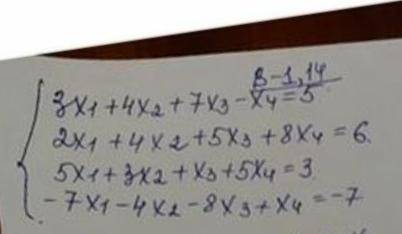 В-1, 14
3x1 + 4x2 + 7x3 - x4 = 5
2x1 + 4x2 + 5x3 + 8x4 = 6.
5x1 + 3x2 + x3 + 5x4 = 3
-7x1 - 4x2 - 8x3 + x4 = -7